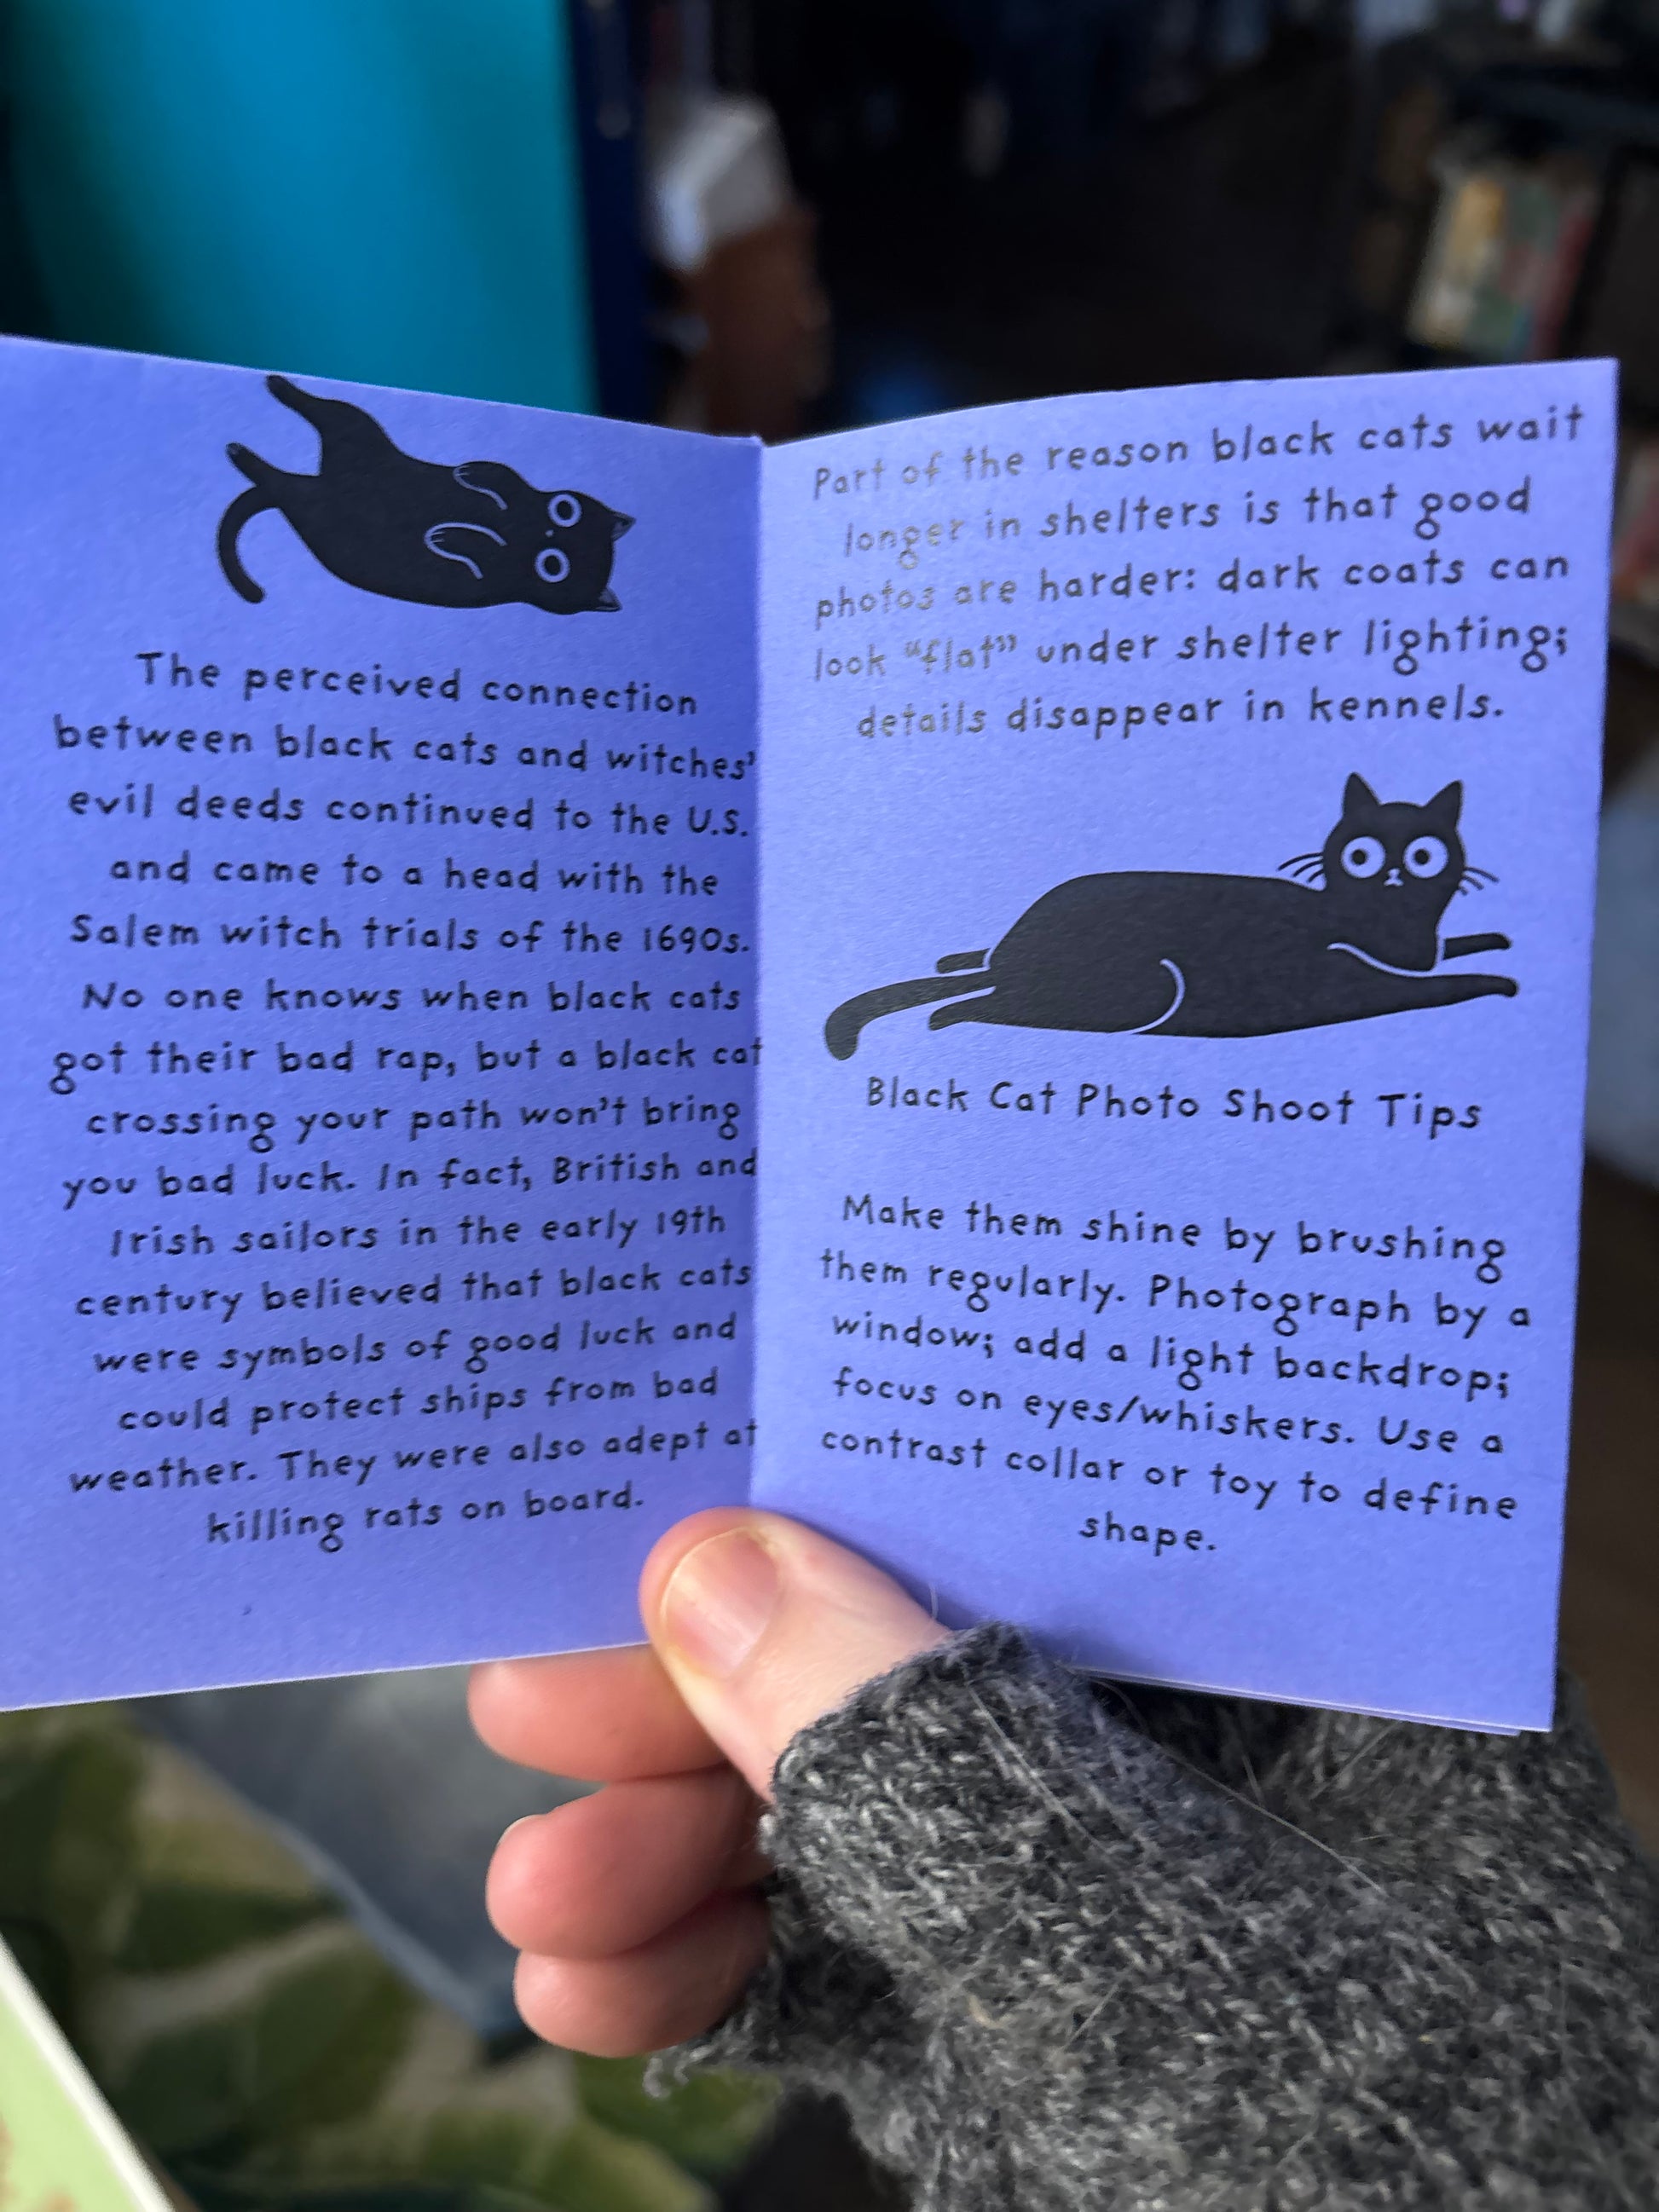 The perceived connection
between black cats and witches'
evil deeds continued to the U.S.
and came to a head with the
Salem witch trials of the 1690s.
No one knows when black cats
got their bad rap, but a black cat
crossing your path won't bring
you bad luck. In fact, British and
Irish sailors in the early 19th
century believed that black cats
were symbols of good luck and
could protect ships from bad
weather. They were also adept at
killing rats on board.
Part of the reason black cats wait
longer in shelters is that good
photos are harder: dark coats can
look “flat” under shelter lighting;
details disappear in kennels.
Black Cat Photo Shoot Tips
Make them shine by brushing
them regularly. Photograph by a
window; add a light backdrop;
focus on eyes/whiskers. Use a
contrast collar or toy to define
shape.